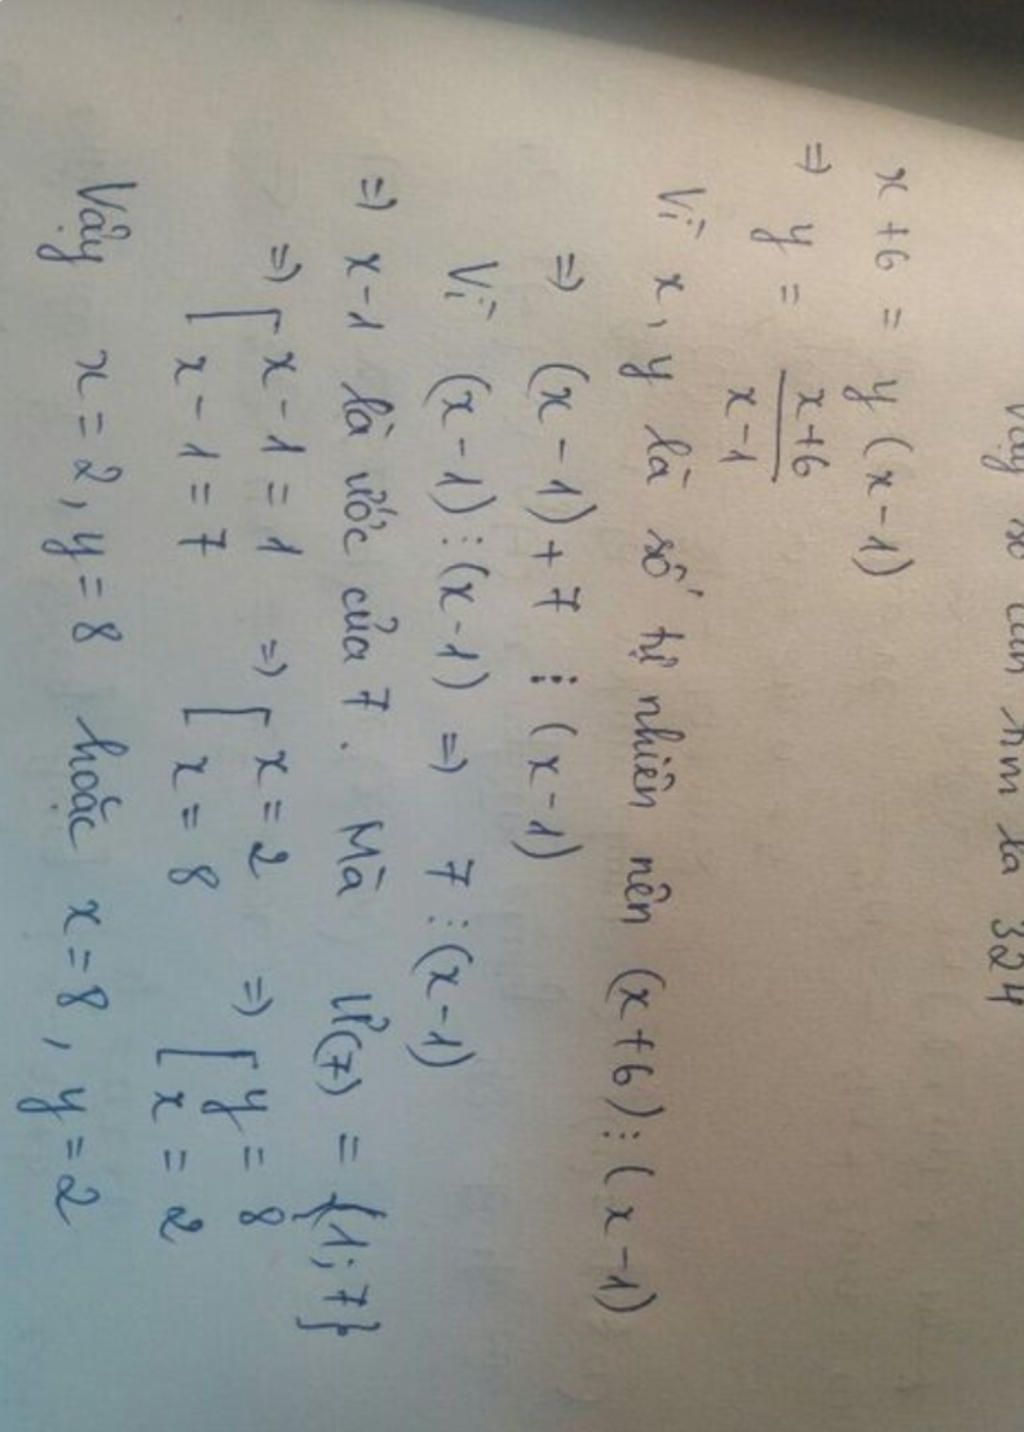 Vậy số cần tìm là 324
x + 6 = y (x - 1)
⇒ y = \frac{x+6}{x-1}
Vì x, y là số tự nhiên nên (x+6) ⋮ (x-1)
⇒ (x - 1) + 7 ⋮ (x - 1)
Vì (x-1) ⋮ (x-1) ⇒ 7 ⋮ (x-1)
⇒ x-1 là ước của 7. Mà Ư(7) = {1; 7}
⇒ [ x - 1 = 1 ⇒ [ x = 2 ⇒ [ y = 8
x - 1 = 7 x = 8 x = 2
Vậy x = 2, y = 8 hoặc x = 8, y = 2